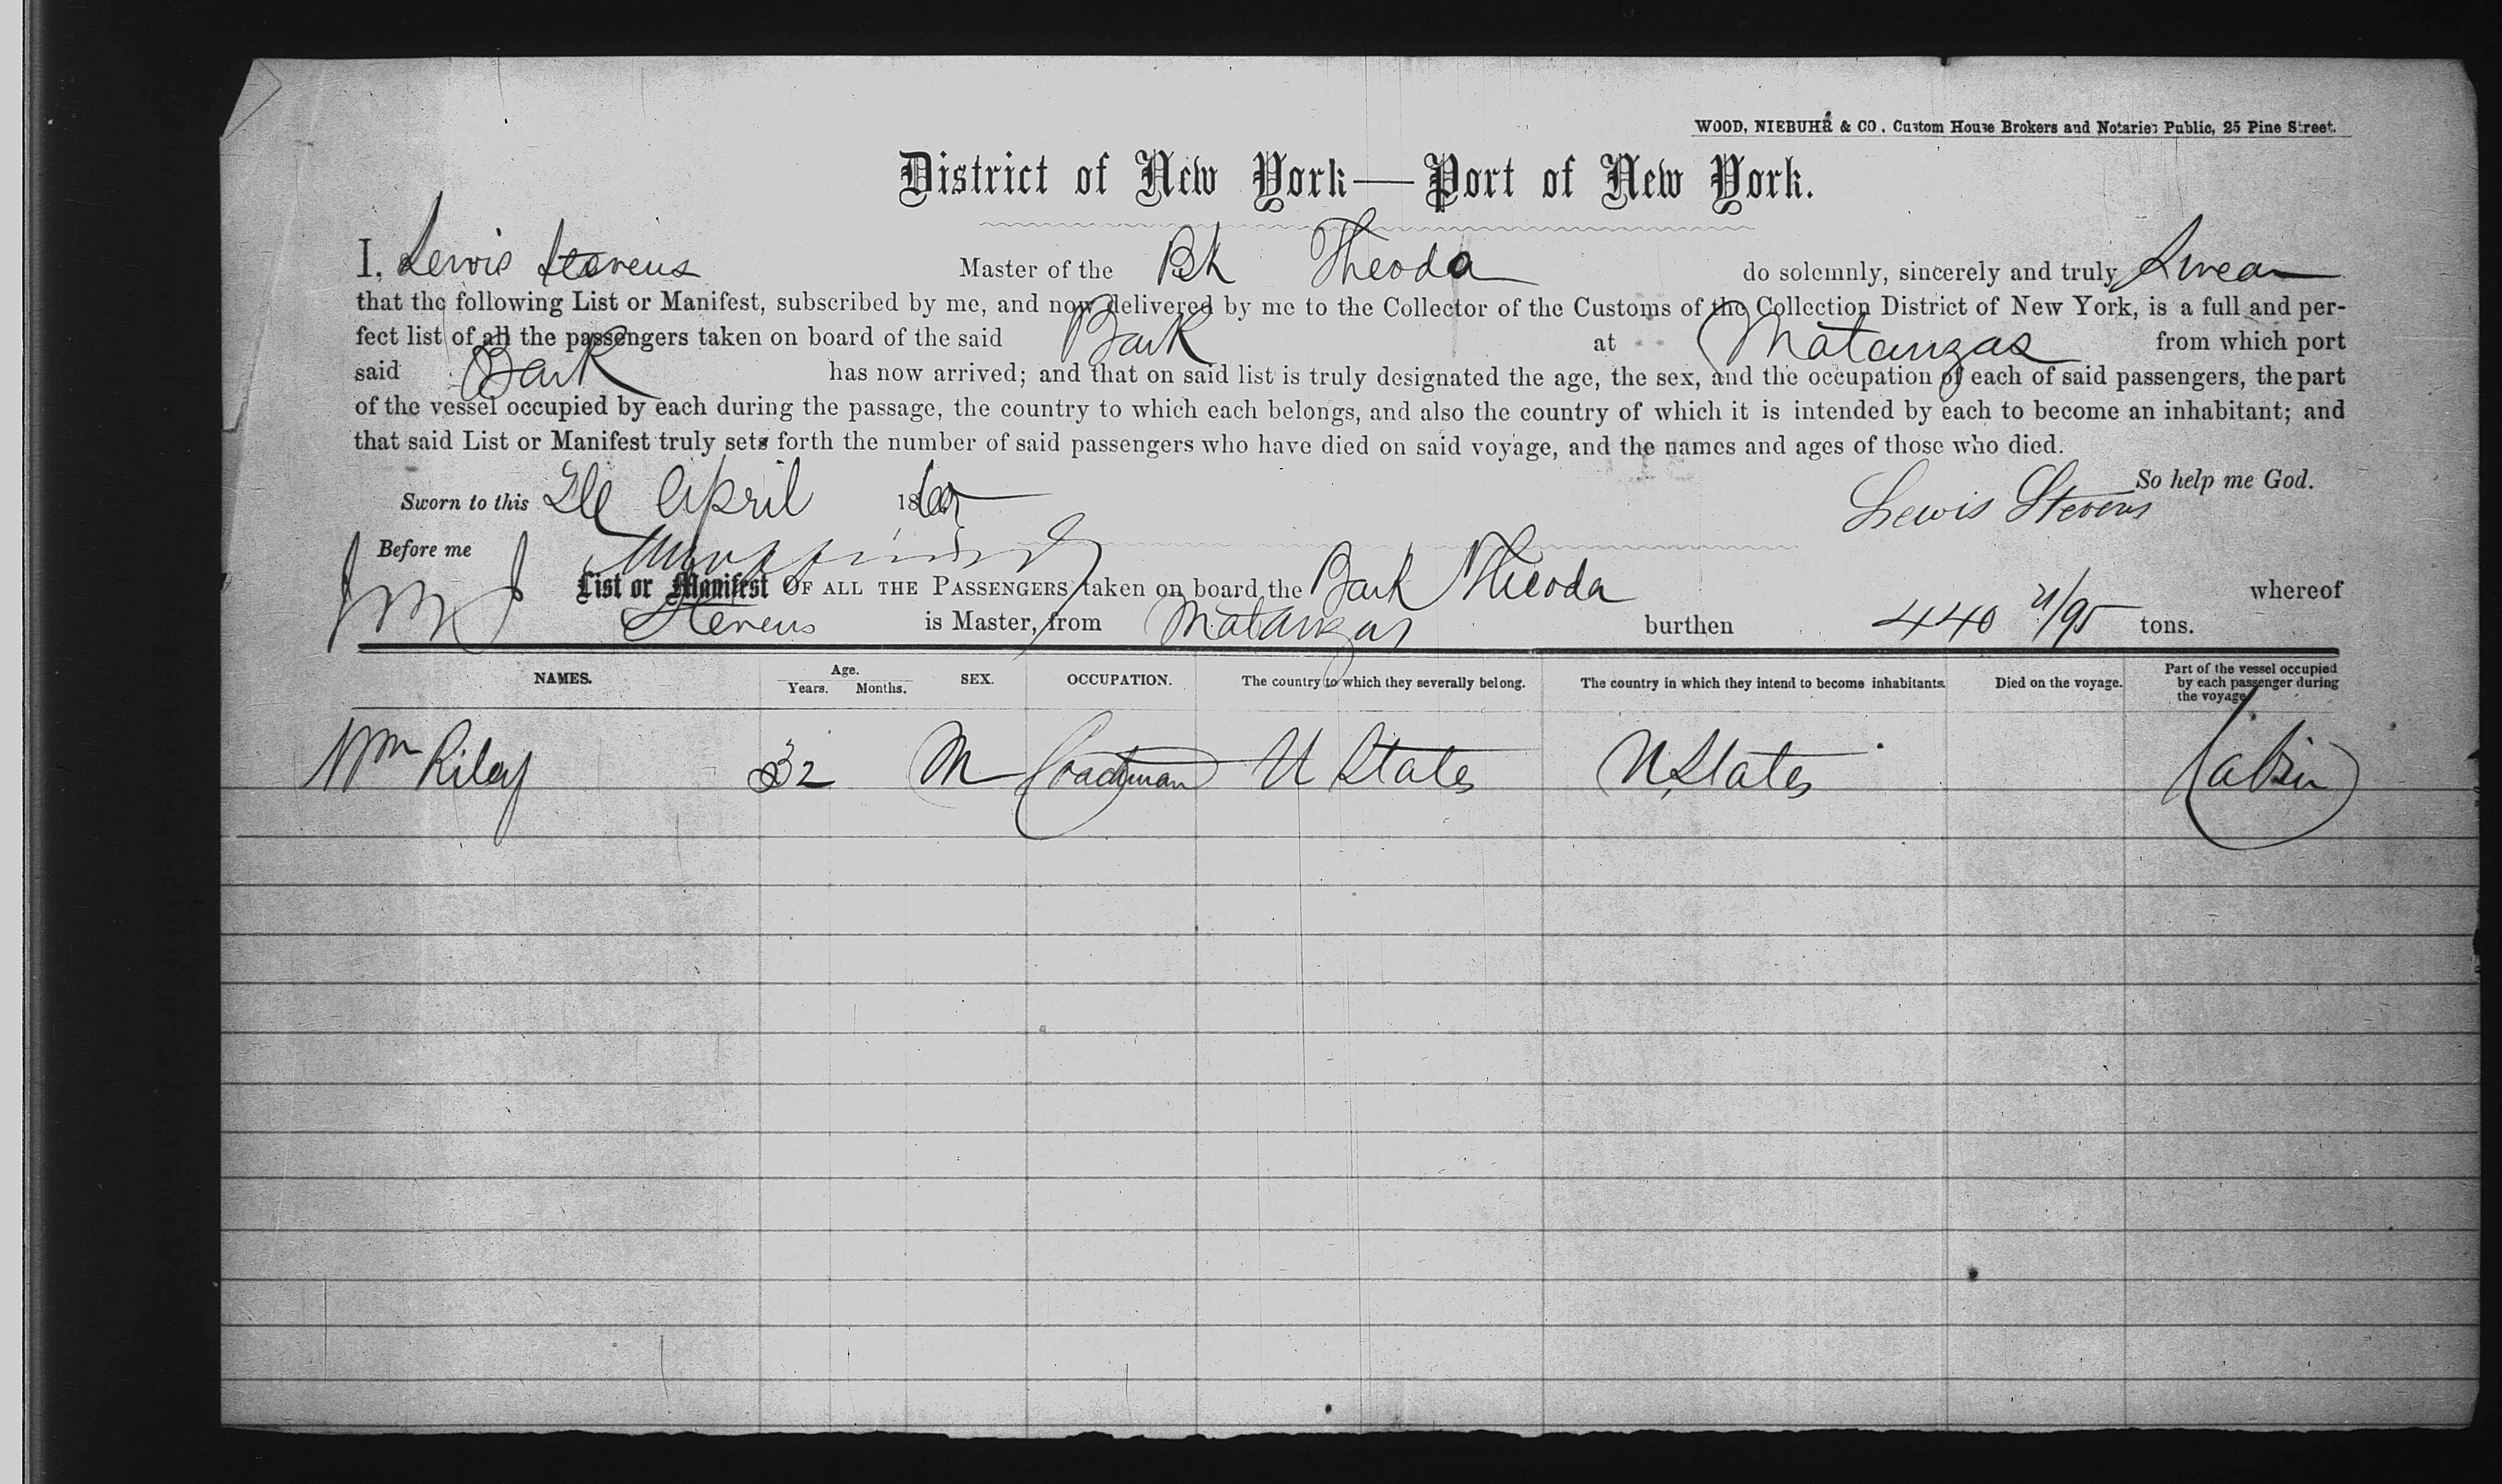 WOOD, NIEBUHR & CO. Custom House Brokers and Notaries Public, 25 Pine Street.
District of New York—Port of New York.
I, Lewis Stevens Master of the Bk Theoda do solemnly, sincerely and truly Swear
that the following List or Manifest, subscribed by me, and now delivered by me to the Collector of the Customs of the Collection District of New York, is a full and per-
fect list of all the passengers taken on board of the said Bark at Matanzas from which port
said Bark has now arrived; and that on said list is truly designated the age, the sex, and the occupation of each of said passengers, the part
of the vessel occupied by each during the passage, the country to which each belongs, and also the country of which it is intended by each to become an inhabitant; and
that said List or Manifest truly sets forth the number of said passengers who have died on said voyage, and the names and ages of those who died.
So help me God.
Sworn to this April 18 Lewis Stevens
Before me
List or Manifest OF ALL THE PASSENGERS taken on board the Bark Theoda whereof
Stevens is Master, from Matanzas burthen 440 21/95 tons.
NAMES. Age. Years. Months. SEX. OCCUPATION. The country to which they severally belong. The country in which they intend to become inhabitants. Died on the voyage. Part of the vessel occupied by each passenger during the voyage
Wm Riley 32 M Coachman U States U. States Cabin